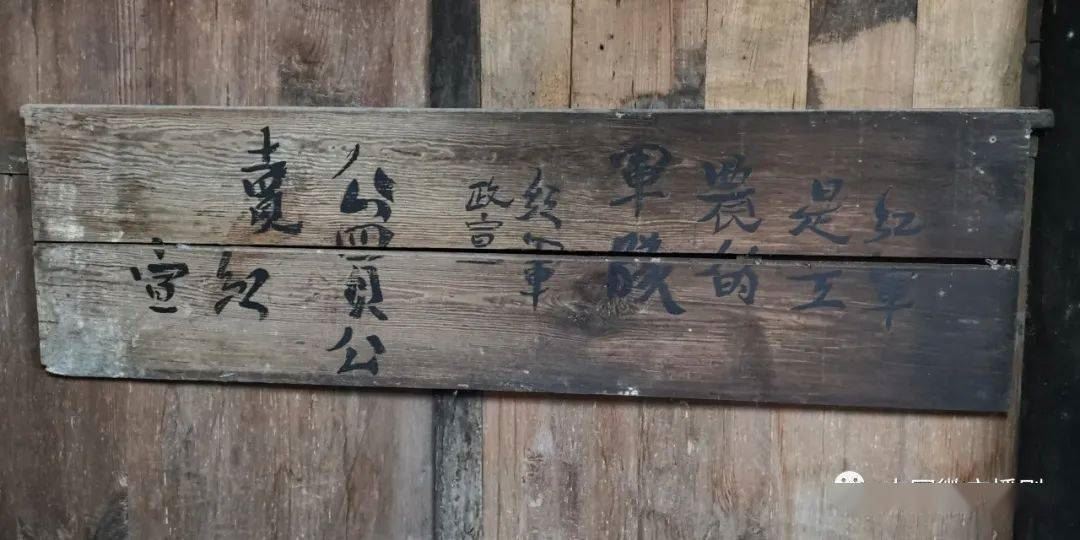 红軍
是工
農的
軍隊
红軍
政宣
公買公
賣
红
宣